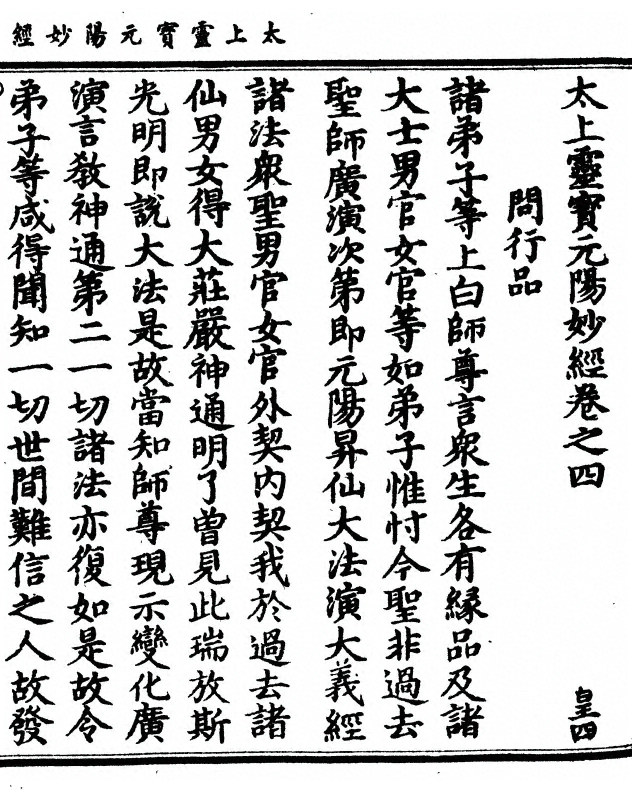 太上靈寶元陽妙經
太上靈寶元陽妙經卷之四
皇四
問行品
諸弟子等上白師尊言衆生各有緣品及諸
大士男官女官等如弟子惟忖今聖非過去
聖師廣演次第即元陽昇仙大法演大義經
諸法衆聖男官女官外契内契我於過去諸
仙男女得大莊嚴神通明了曾見此瑞放斯
光明即說大法是故當知師尊現示變化廣
演言教神通第二一切諸法亦復如是故令
弟子等咸得聞知一切世間難信之人故發